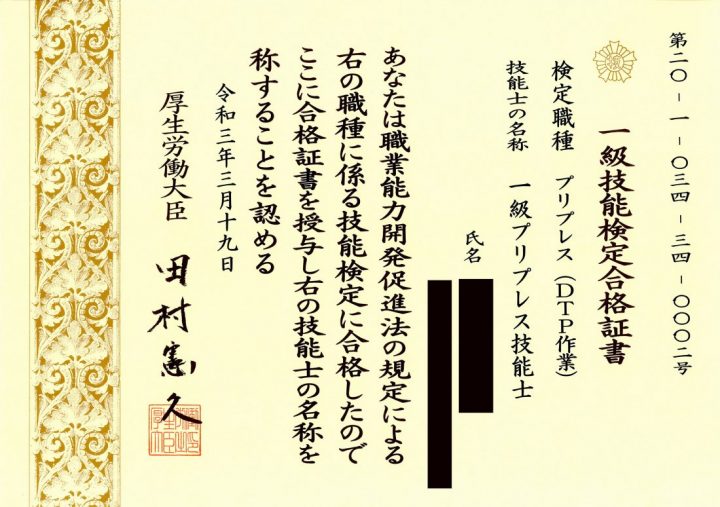 第二〇-一-〇三四-三四-〇〇〇二号
一級技能検定合格証書
検定職種 プリプレス（DTP作業）
技能士の名称 一級プリプレス技能士
氏名
あなたは職業能力開発促進法の規定による
右の職種に係る技能検定に合格したので
ここに合格証書を授与し右の技能士の名称を
称することを認める
令和三年三月十九日
厚生労働大臣 田村憲久